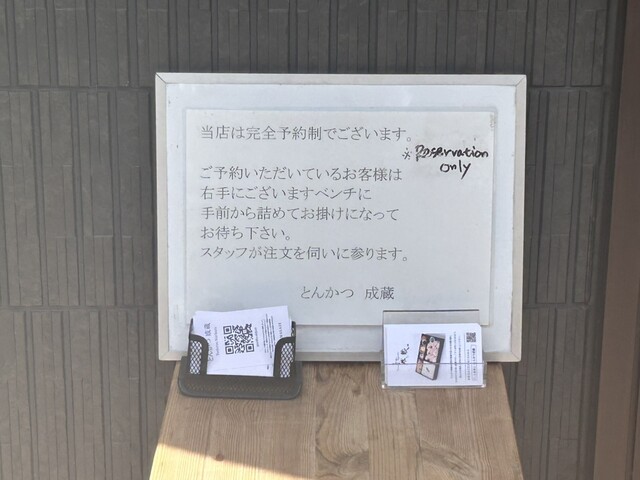 当店は完全予約制でございます。
※Reservation
only
ご予約いただいているお客様は
右手にございますベンチに
手前から詰めてお掛けになって
お待ち下さい。
スタッフが注文を伺いに参ります。
とんかつ 成蔵